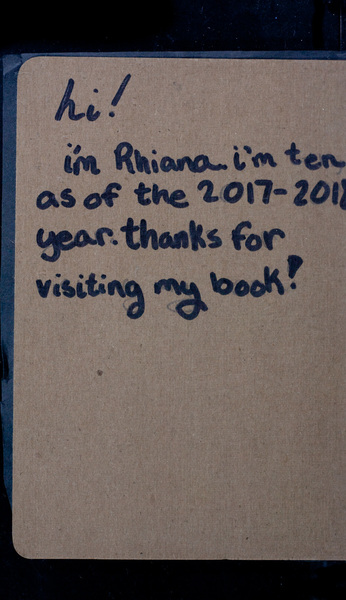 hi!
i'm Rhiana. i'm ten
as of the 2017-2018
year. thanks for
visiting my book!